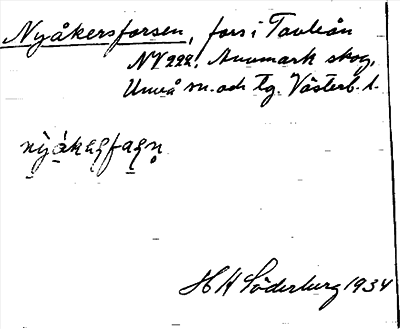 Nyåkersforsen, fors i Tavleån
NV 222, Anumark skog,
Umeå sn. och tg. Västerb. l.
H H Söderberg 1934